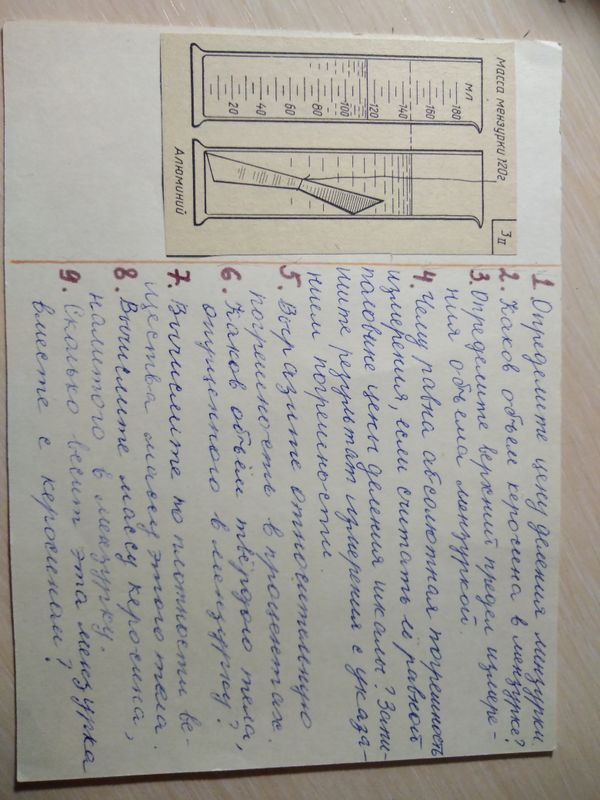 Масса мензурки 120г.
3 II
мл
180
160
140
120
100
80
60
40
20
Алюминий
1. Определите цену деления мензурки.
2. Каков объем керосина в мензурке?
3. Определите верхний предел измере-
ния объема мензуркой.
4. Чему равна абсолютная погрешность
измерения, если считать её равной
половине цены деления шкалы? Запи-
шите результат измерения с указа-
нием погрешности.
5. Выразите относительную
погрешность в процентах.
6. Каков объём твёрдого тела,
опущенного в мензурку?
7. Вычислите по плотности ве-
щества массу этого тела.
8. Вычислите массу керосина,
налитого в мензурку.
9. Сколько весит эта мензурка
вместе с керосином?